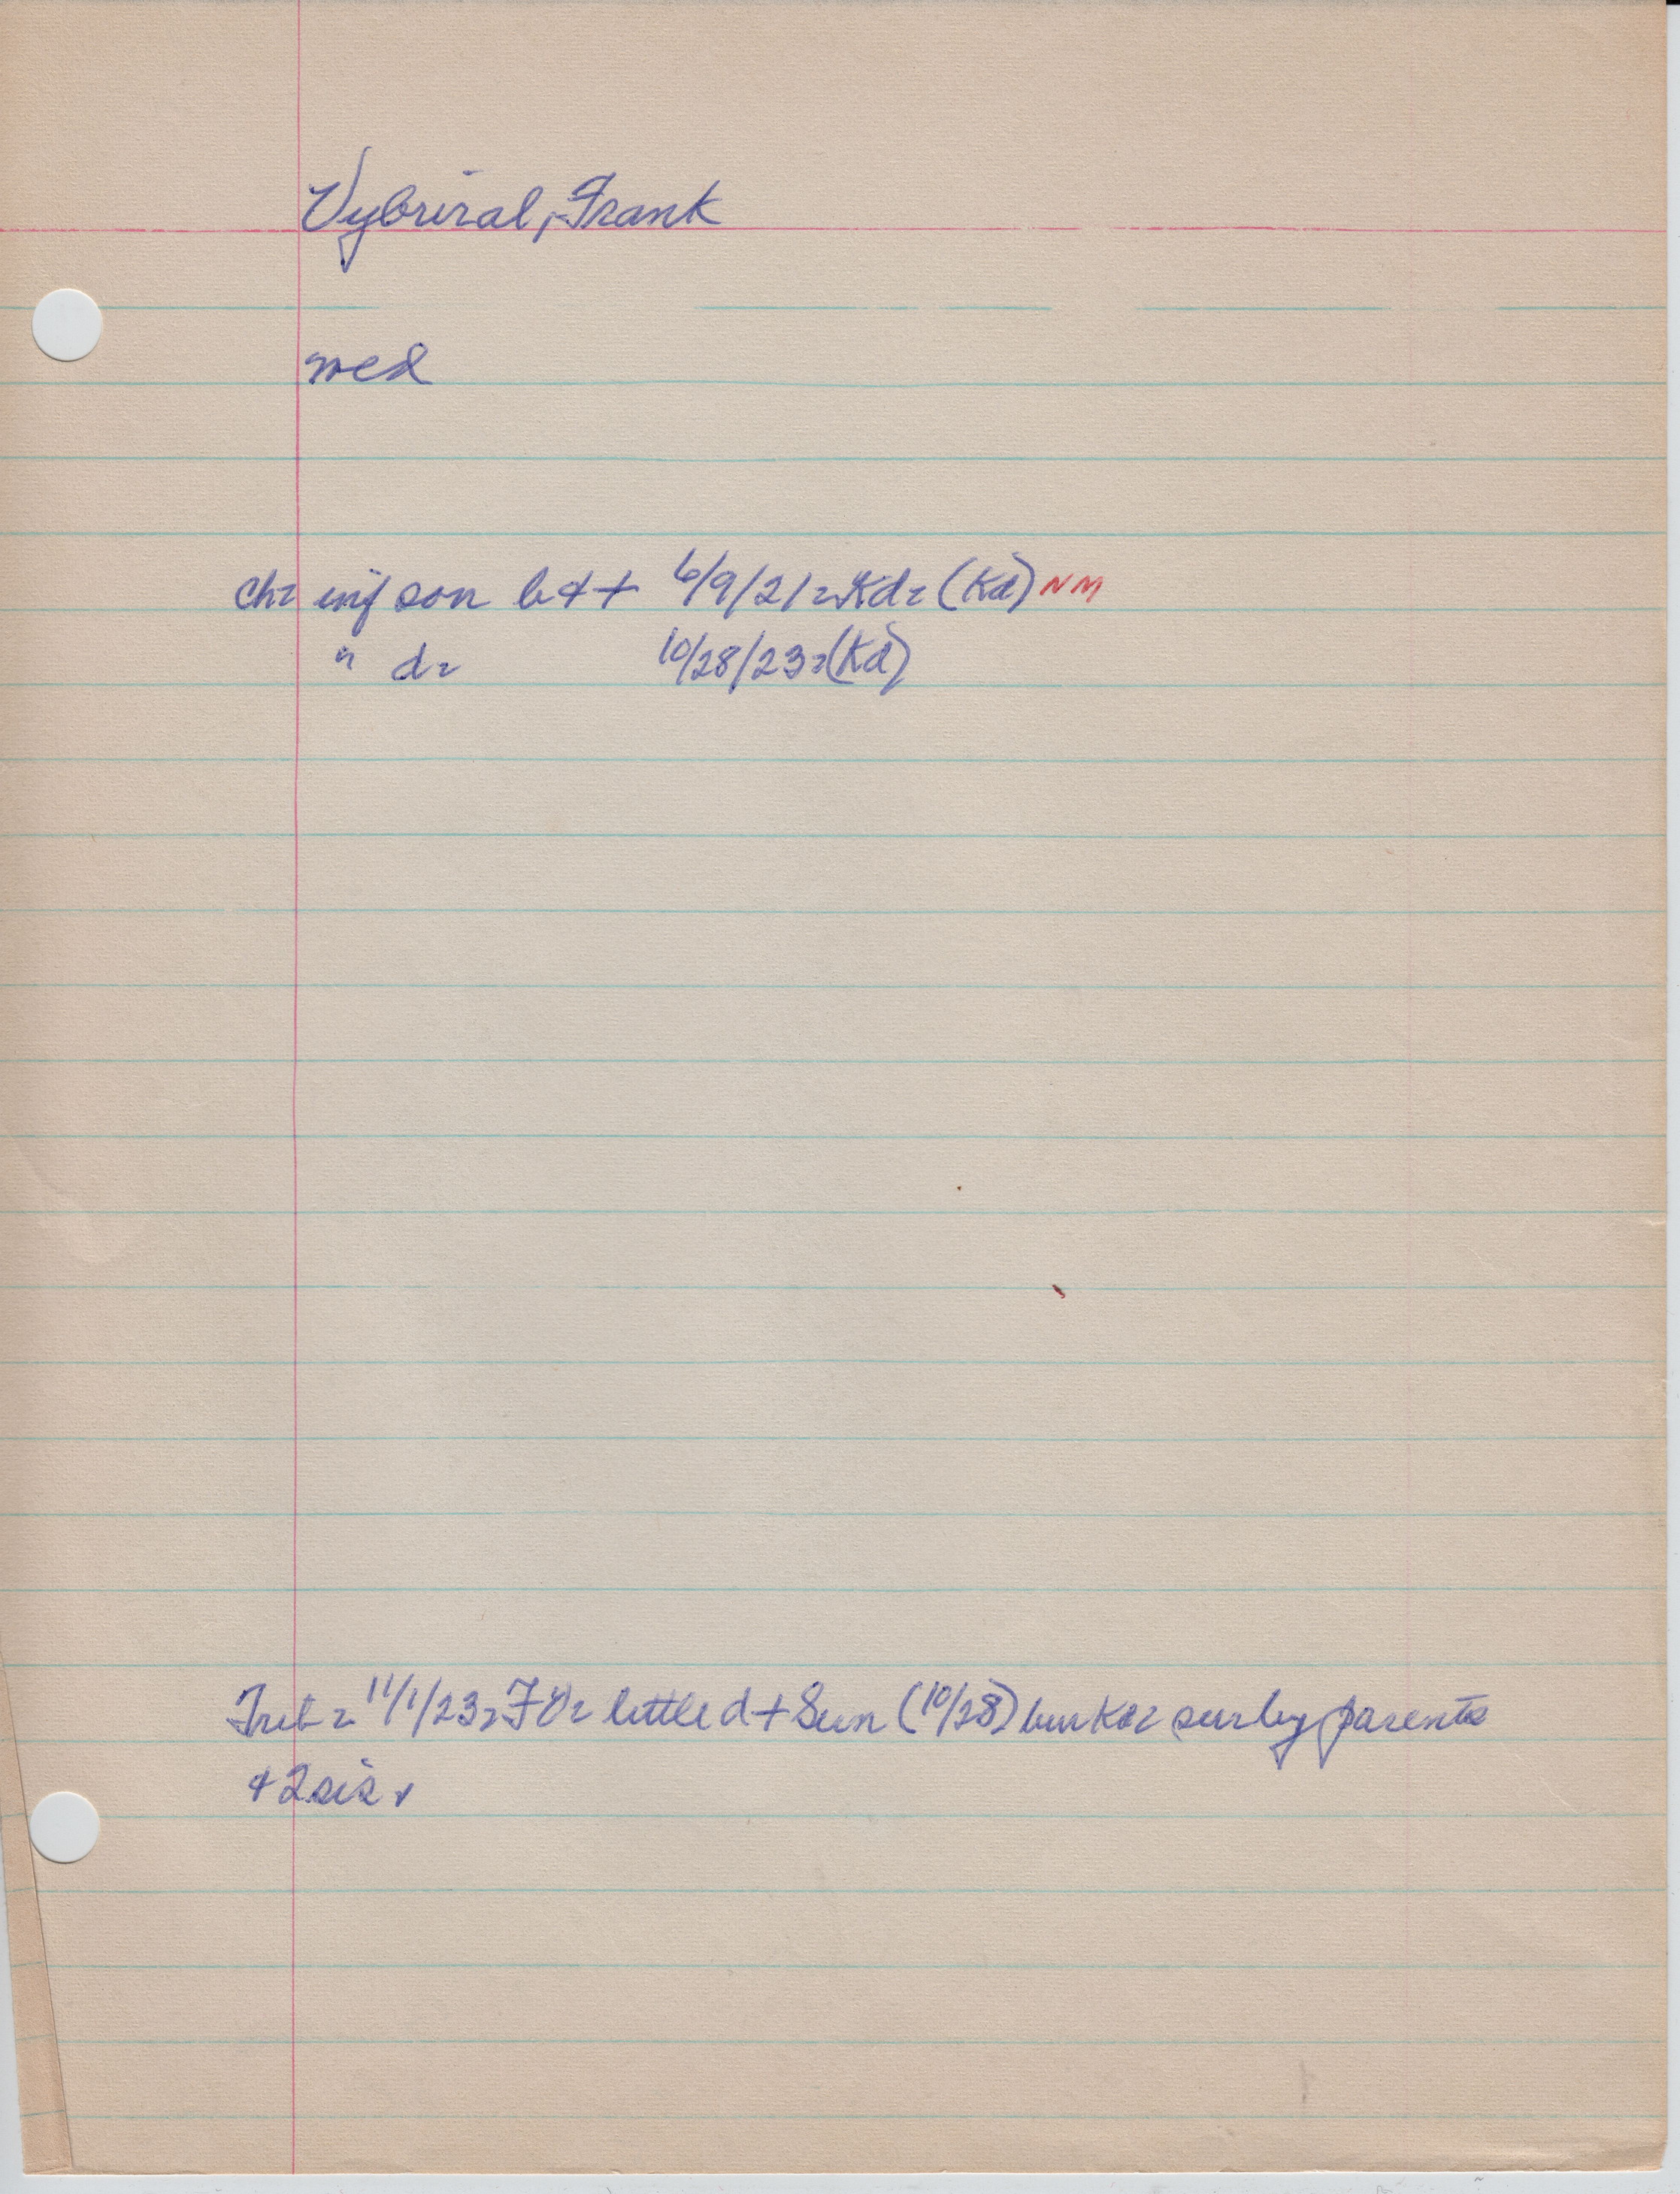 Vybriral, Frank
med
ch= inf son b & + 6/9/21 = Kd = (Kd) NM
" d = 10/28/23 = (Kd)
Trib = 11/1/23 = FO = little d + Sun (10/28) bur Kd = sur by parents
& 2 sis.